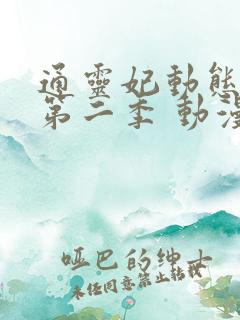 通靈妃動態
第二季 動漫
哑巴的绅士
未经同意禁止转载